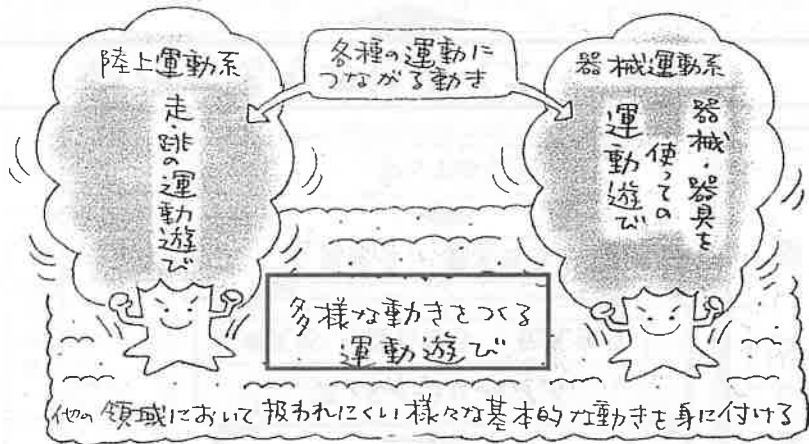 陸上運動系
走・跳の運動遊び
各種の運動に
つながる動き
器械運動系
器械・器具を
使っての
運動遊び
多様な動きをつくる
運動遊び
他の領域において扱われにくい様々な基本的な動きを身に付ける